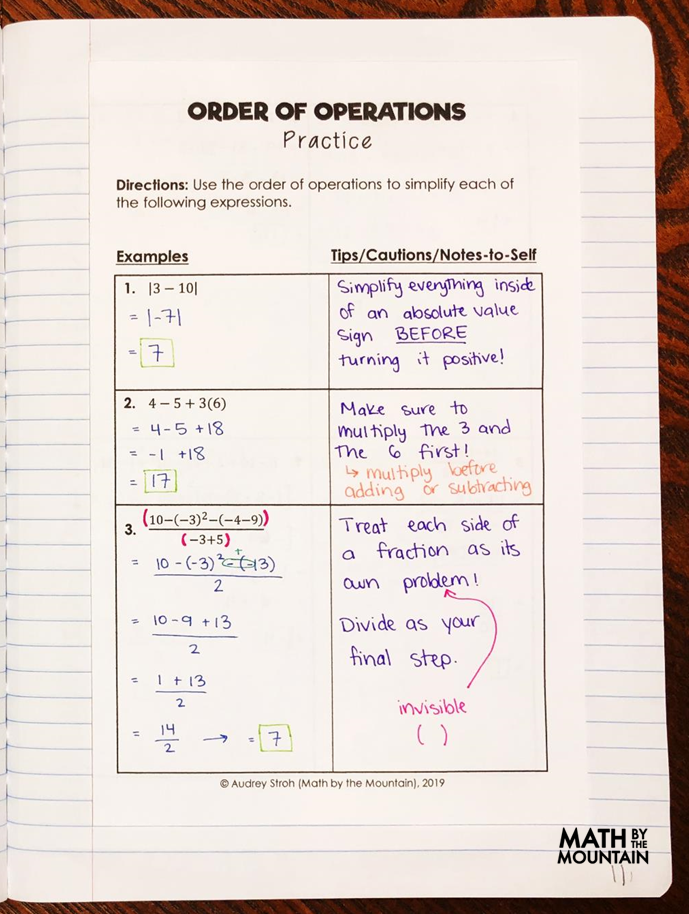 ORDER OF OPERATIONS
Practice
Directions: Use the order of operations to simplify each of
the following expressions.
Examples
Tips/Cautions/Notes-to-Self
1. |3 − 10|
= |-7|
= 7
Simplify everything inside
of an absolute value
sign BEFORE
turning it positive!
2. 4 − 5 + 3(6)
= 4-5 +18
= -1 +18
= 17
Make sure to
multiply the 3 and
the 6 first!
↳ multiply before
adding or subtracting
3. (10−(−3)²−(−4−9))
(−3+5)
= 10 -(-3)² -(-13)
+
2
= 10-9 +13
2
= 1 + 13
2
= 14
2 → = 7
Treat each side of
a fraction as its
own problem!
Divide as your
final step.
invisible
( )
© Audrey Stroh (Math by the Mountain), 2019
MATH BY THE
MOUNTAIN